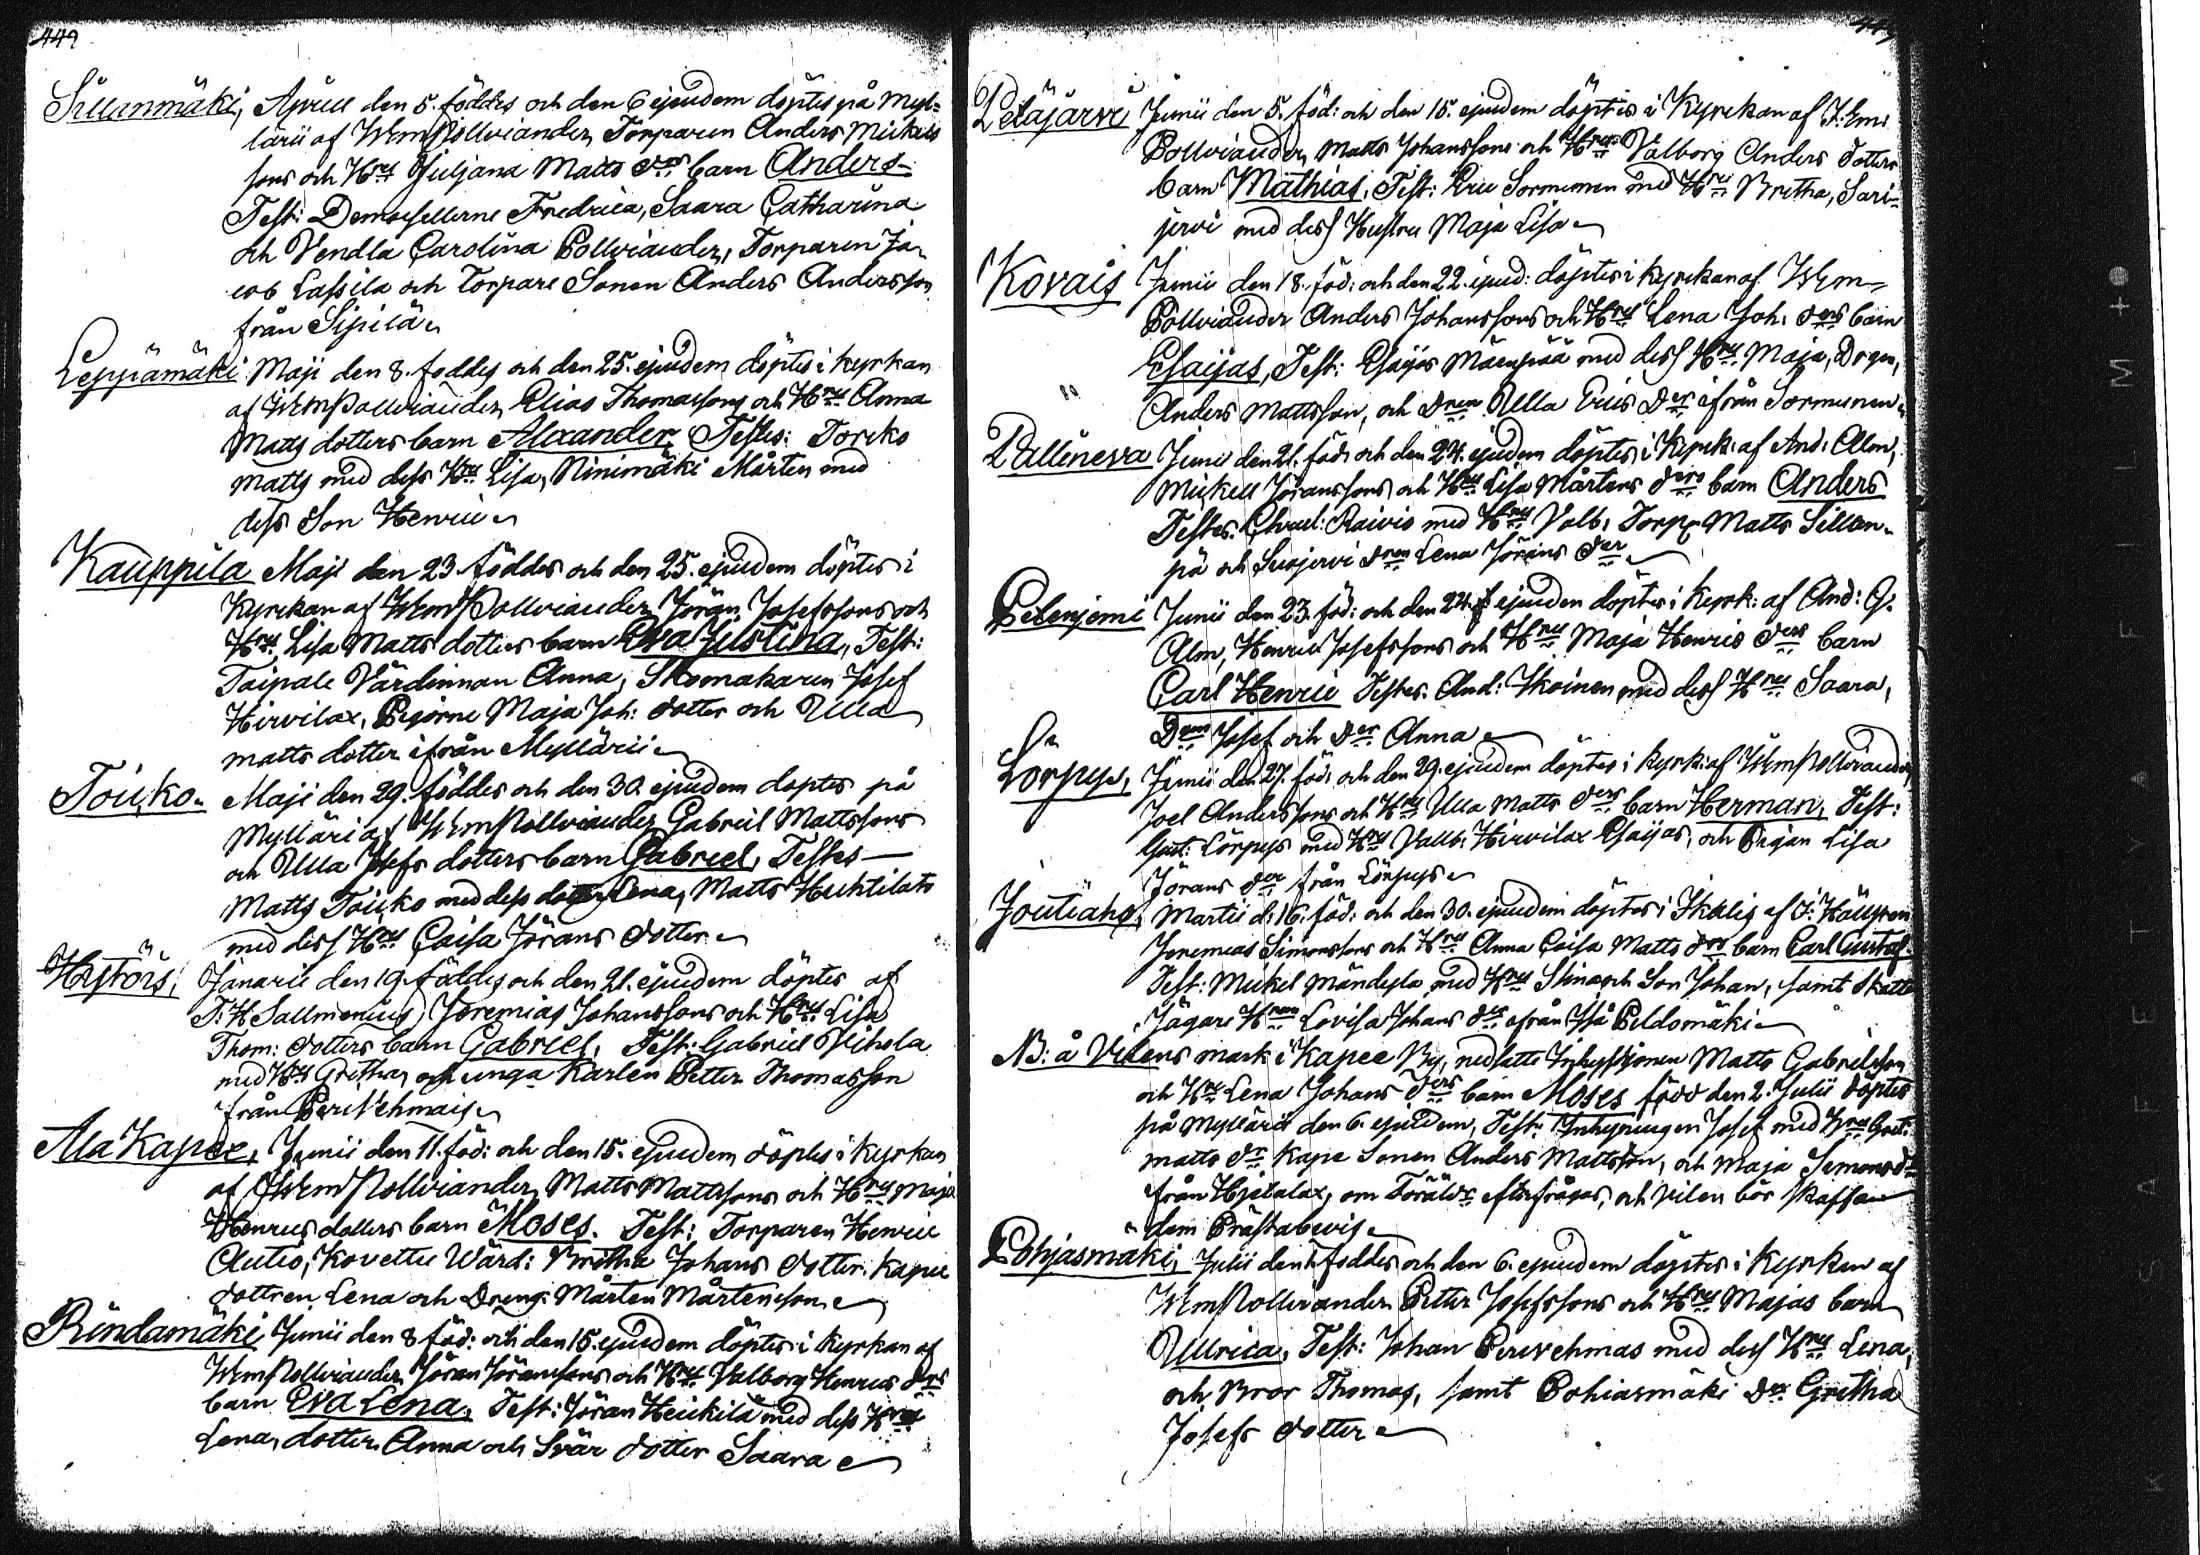 449
Sillanmäki, Aprill den 5. föddes och den 6 ejusdem döptes på Myl-
lärii af WPmPollviander, Torparen Anders Mickels
sons och Hru Juljana Matts drs barn Anders
Test: Demoisellerne Fredrica, Saara Catharina
och Vendla Carolina Pollviander, Torparen Ja-
cob Lassila och Torpare Sonen Anders Andersson
från Sipilä
Leppämäki Maji den 8. foddes och den 25. ejusdem döptes i kyrkan
af WPmPollviander, Elias Thomassons och Hrus Anna
Matts dotters barn Alexander Testes: Torcko
Matts med dess Hru Lisa, Ninimäki Mårten med
dess Son Henric
Kauppila Maji den 23. föddes och den 25. ejusdem döptes i
Kyrckan af WPmPollviander, Jöran Josefssons och
Hrus Lisa Matts dotters barn Eva Justina, Test:
Taipale Värdinnan Anna, Skomakaren Josef
Hirvilax, Pigorne Maja Joh: dotter och Ulla
Matts dotter ifrån Myllärii
Touko. Maji den 29. föddes och den 30. ejusdem döptes på
Mylläri af WPmPollviander Gabriel Mattssons
och Ulla Josefs dotters barn Gabriel, Testes
Matts Touko med dess dotter Lena, Matts Huhtilato
med dess Hru Caisa Jörans dotter
Januarii den 19. föddes och den 21. ejusdem döptes af
Sallmenius, Jeremias Johanssons och Hrus Lisa
Thom: dotters barn Gabriel, Test: Gabriel Vihola
med Hru Gretha, och unga Karlen Petter Thomasson
från Perevehmais
Ala Kapee, Junii den 11. föd: och den 15. ejusdem döptes i Kyrkan
af WPmPollviander, Matts Mattssons och Hrus Maja
Henrics dotters barn Moses. Test: Torparen Henric
Autio, Kovettu Wärd: Britha Johans dotter. Kapee
dottren Lena och Dreng: Mårten Mårtensson
Rindamäki Junii den 8 föd: och den 15. ejusdem döptes i Kyrkan af
WPmPollviander, Jöran Jöranssons och Hrus Valborg Henrics drs
barn Eva Lena, Test: Jöran Heickilä med dess Hru
Lena, dotter Anna och Svär dotter Saara
449
Petäjärvi Junii den 5. föd: och den 15. ejusdem döptes i Kyrckan af
Pollviander, Matts Johanssons och Hrus Valborg Anders dotters
barn Mathias, Test: Eric Sormunen med Hru Britha, Sari-
jervi med dess Hustru Maja Lisa
Kovais Junii den 18. föd: och den 22. ejusd: döptes i kyrckan af WPm
Pollviander Anders Johanssons och Hrus Lena Joh: drs barn
Esaijas, Test: Esaijas Mäenpää med dess Hru Maja, Drgn,
Anders Mattsson, och Ulla Erics Der ifrån Sormunen
Pallineva Junii den 21. föd: och den 24. ejusdem döptes i Kyrck: af And: Alm,
Mickell Jöranssons och Hrus Lisa Mårtens drs barn Anders
Testes: Raivio med Hru Valb: Torp: Matts Sillan-
pä och Suojervi Lena Jörans der
Junii den 23. föd: och den 24. ejusdem döptes i Kyrk: af And: G.
Alm, Henric Josefssons och Hrus Maja Henrics drs barn
Carl Henric Testes: And: Skoinen med dess Hru Saara,
Josef och Der Anna
Lörpys, Junii den 27. föd: och den 29. ejusdem döptes i kyrk: af WPmPollviander,
Joel Anderssons och Hrus Ulla Matts drs barn Herman, Test:
Gust: Lörpys med Hru Valb: Hirvilax Esaijas, och Pigan Lisa
Jörans der från Lörpys
Martii d: 16. föd: och den 30. ejusdem döptes i Ikalis af
Jeremias Simonssons och Hrus Anna Caisa Matts drs barn Carl Gustaf.
Test: Mickel Mändylä med Hru Stina och Son Johan, samt Skatte
Jägare Hrun Lovisa Johans der Peldomäki
NB: å Vilens mark i Kapee By, nedsatte Matts Gabrielsson
och Hru Lena Johans drs barn Moses född den 2. Julii döptes
på Myllärii den 6. ejusdem, Test: Inhysingen Josef med Hru Gret:
Matts dr Kape Sonen Anders Mattsson, och Maja Simons dr
från Hjetalax, om Föräldr efterfrågas, och Vilen bör skaffa
dem Prästabevis
Pohjasmäki, Julii den föddes och den 6. ejusdem döptes i Kyrkan af
WPmPollviander Petter Josefssons och Hrus Majas barn
Ullrica, Test: Johan Perevehmas med dess Hru Lena,
och Bror Thomas, samt Pohiasmäki Dr Gretha
Josefs dotter